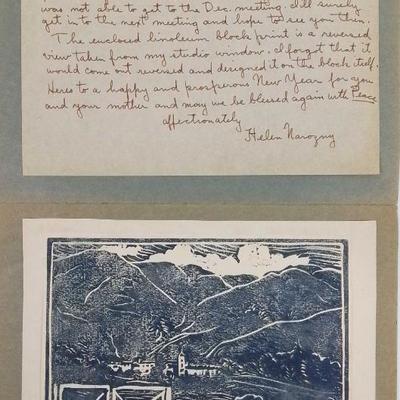 was not able to get to the Dec. meeting. I'll surely
get into the next meeting and hope to see you then.
The enclosed linoleum block print is a reversed
view taken from my studio window. I forgot that it
would come out reversed and designed it on the block itself.
Heres to a happy and prosperous New Year for you
and your mother and may we be blessed again with Peace
affectionately
Helen Narozny